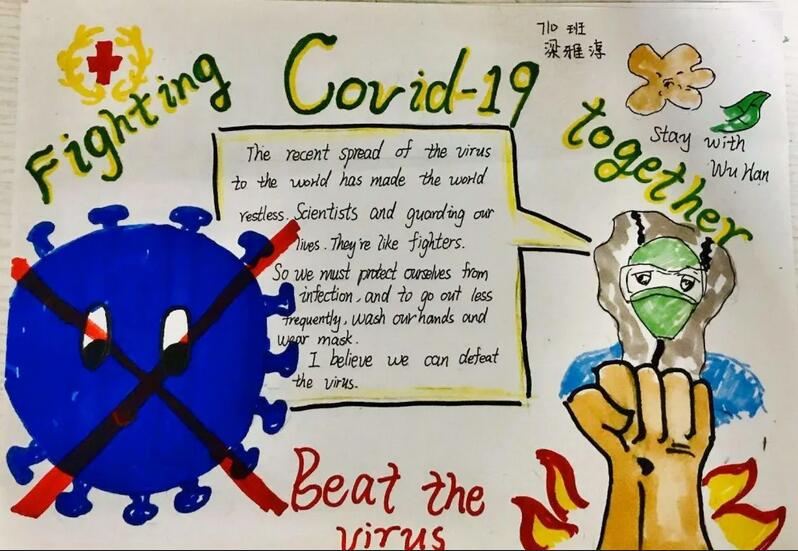 710 班
梁雅淳
Fighting Covid-19 together
Stay with
Wu Han
The recent spread of the virus
to the world has made the world
restless. Scientists and guarding our
lives. They're like fighters.
So we must protect ourselves from
infection, and to go out less
frequently, wash our hands and
wear mask.
I believe we can defeat
the virus.
Beat the
virus